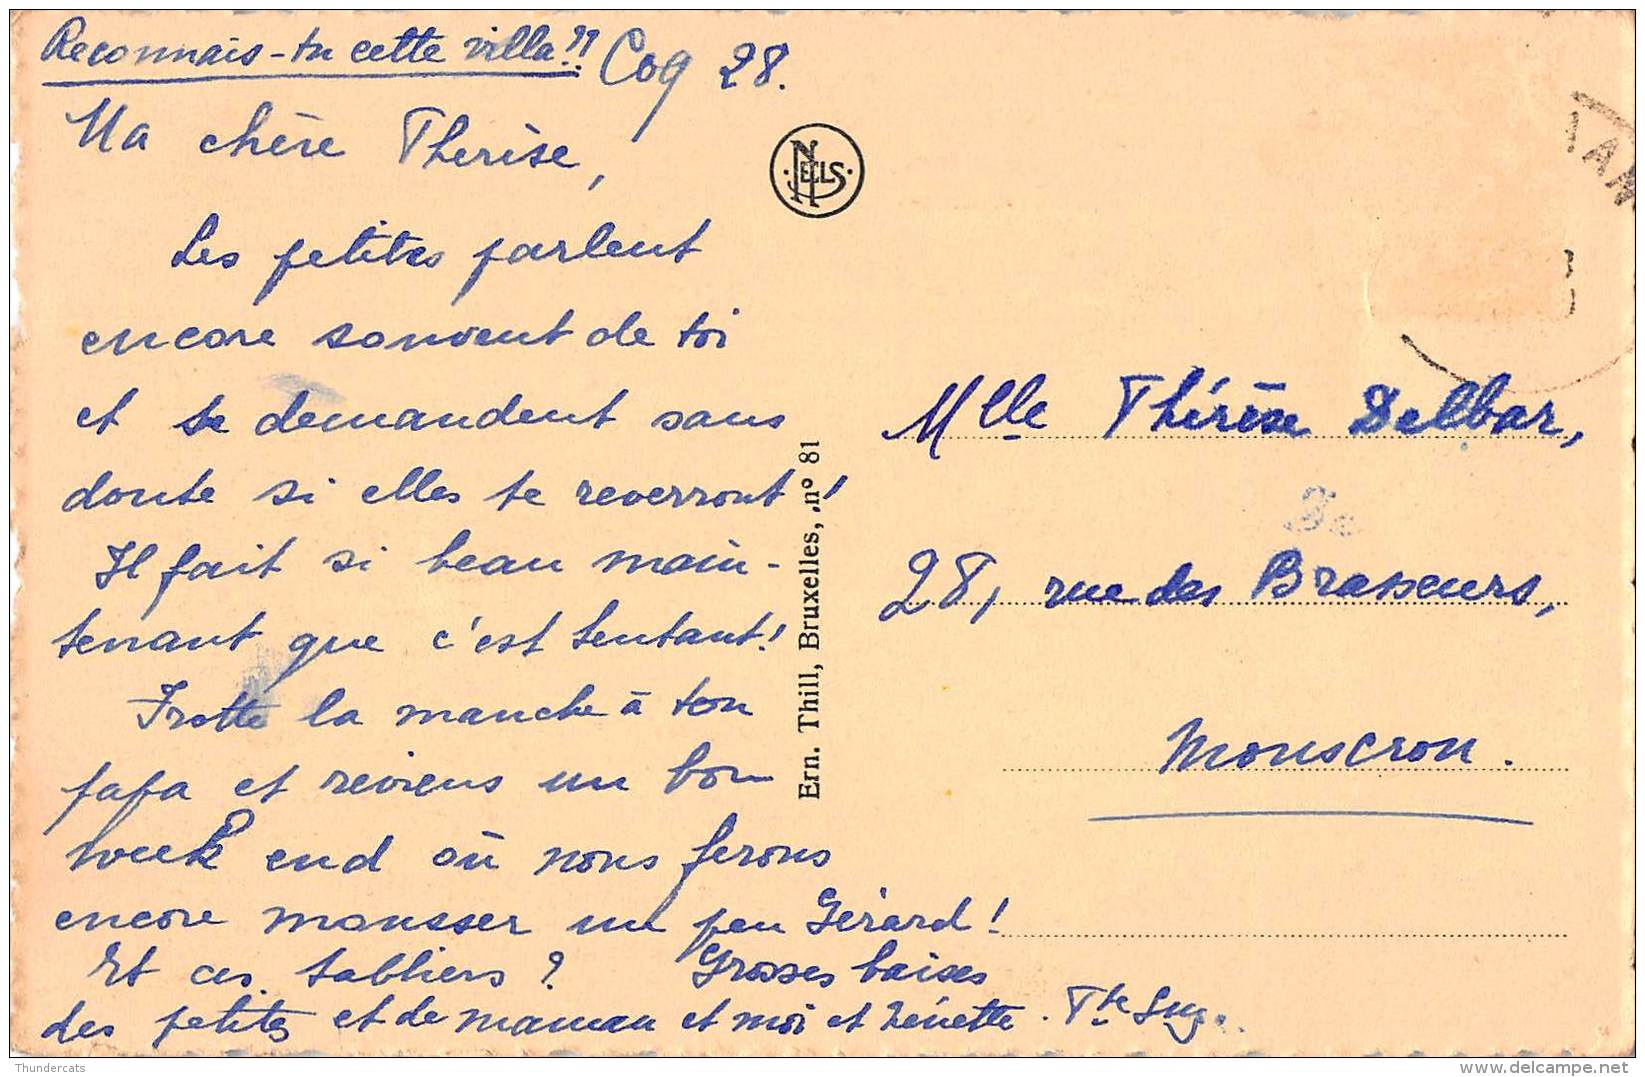 Reconnais-tu cette villa!! Coq 28.
Ma chère Thérèse,
Les petites parlent
encore souvent de toi
et se demandent sans
doute si elles te reverront!
Il fait si beau main-
tenant que c'est tentant!
Frotte la manche à ton
papa et reviens un bon
week end où nous ferons
encore mousser un peu Gérard!
Et ces tabliers ? Grosses baises
des petites et de maman et moi et Zénette. Tte Suz.
NELS
Ern. Thill, Bruxelles, nº 81
Mlle Thérèse Delbar,
28, rue des Brasseurs,
Mouscron.
Thundercats
delcampe.net